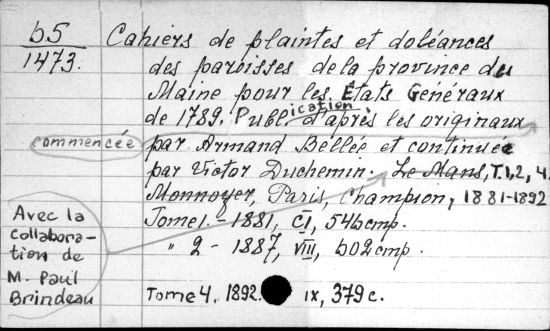 b5
1473.
Cahiers de plaintes et doléances
des paroisses de la province du
Maine pour les États Généraux
de 1789. Publication d'après les originaux
commencée par Armand Bellée et continuée
par Victor Duchemin. Le Mans, T.1,2, 4.
Monnoyer, Paris, Champion, 1881-1892
Tome 1. - 1881, CI, 546 cmp.
" 2 - 1887, VIII, 602 cmp.
Avec la
collabora-
tion de
M. Paul
Brindeau
Tome 4. 1892. IX, 379 c.